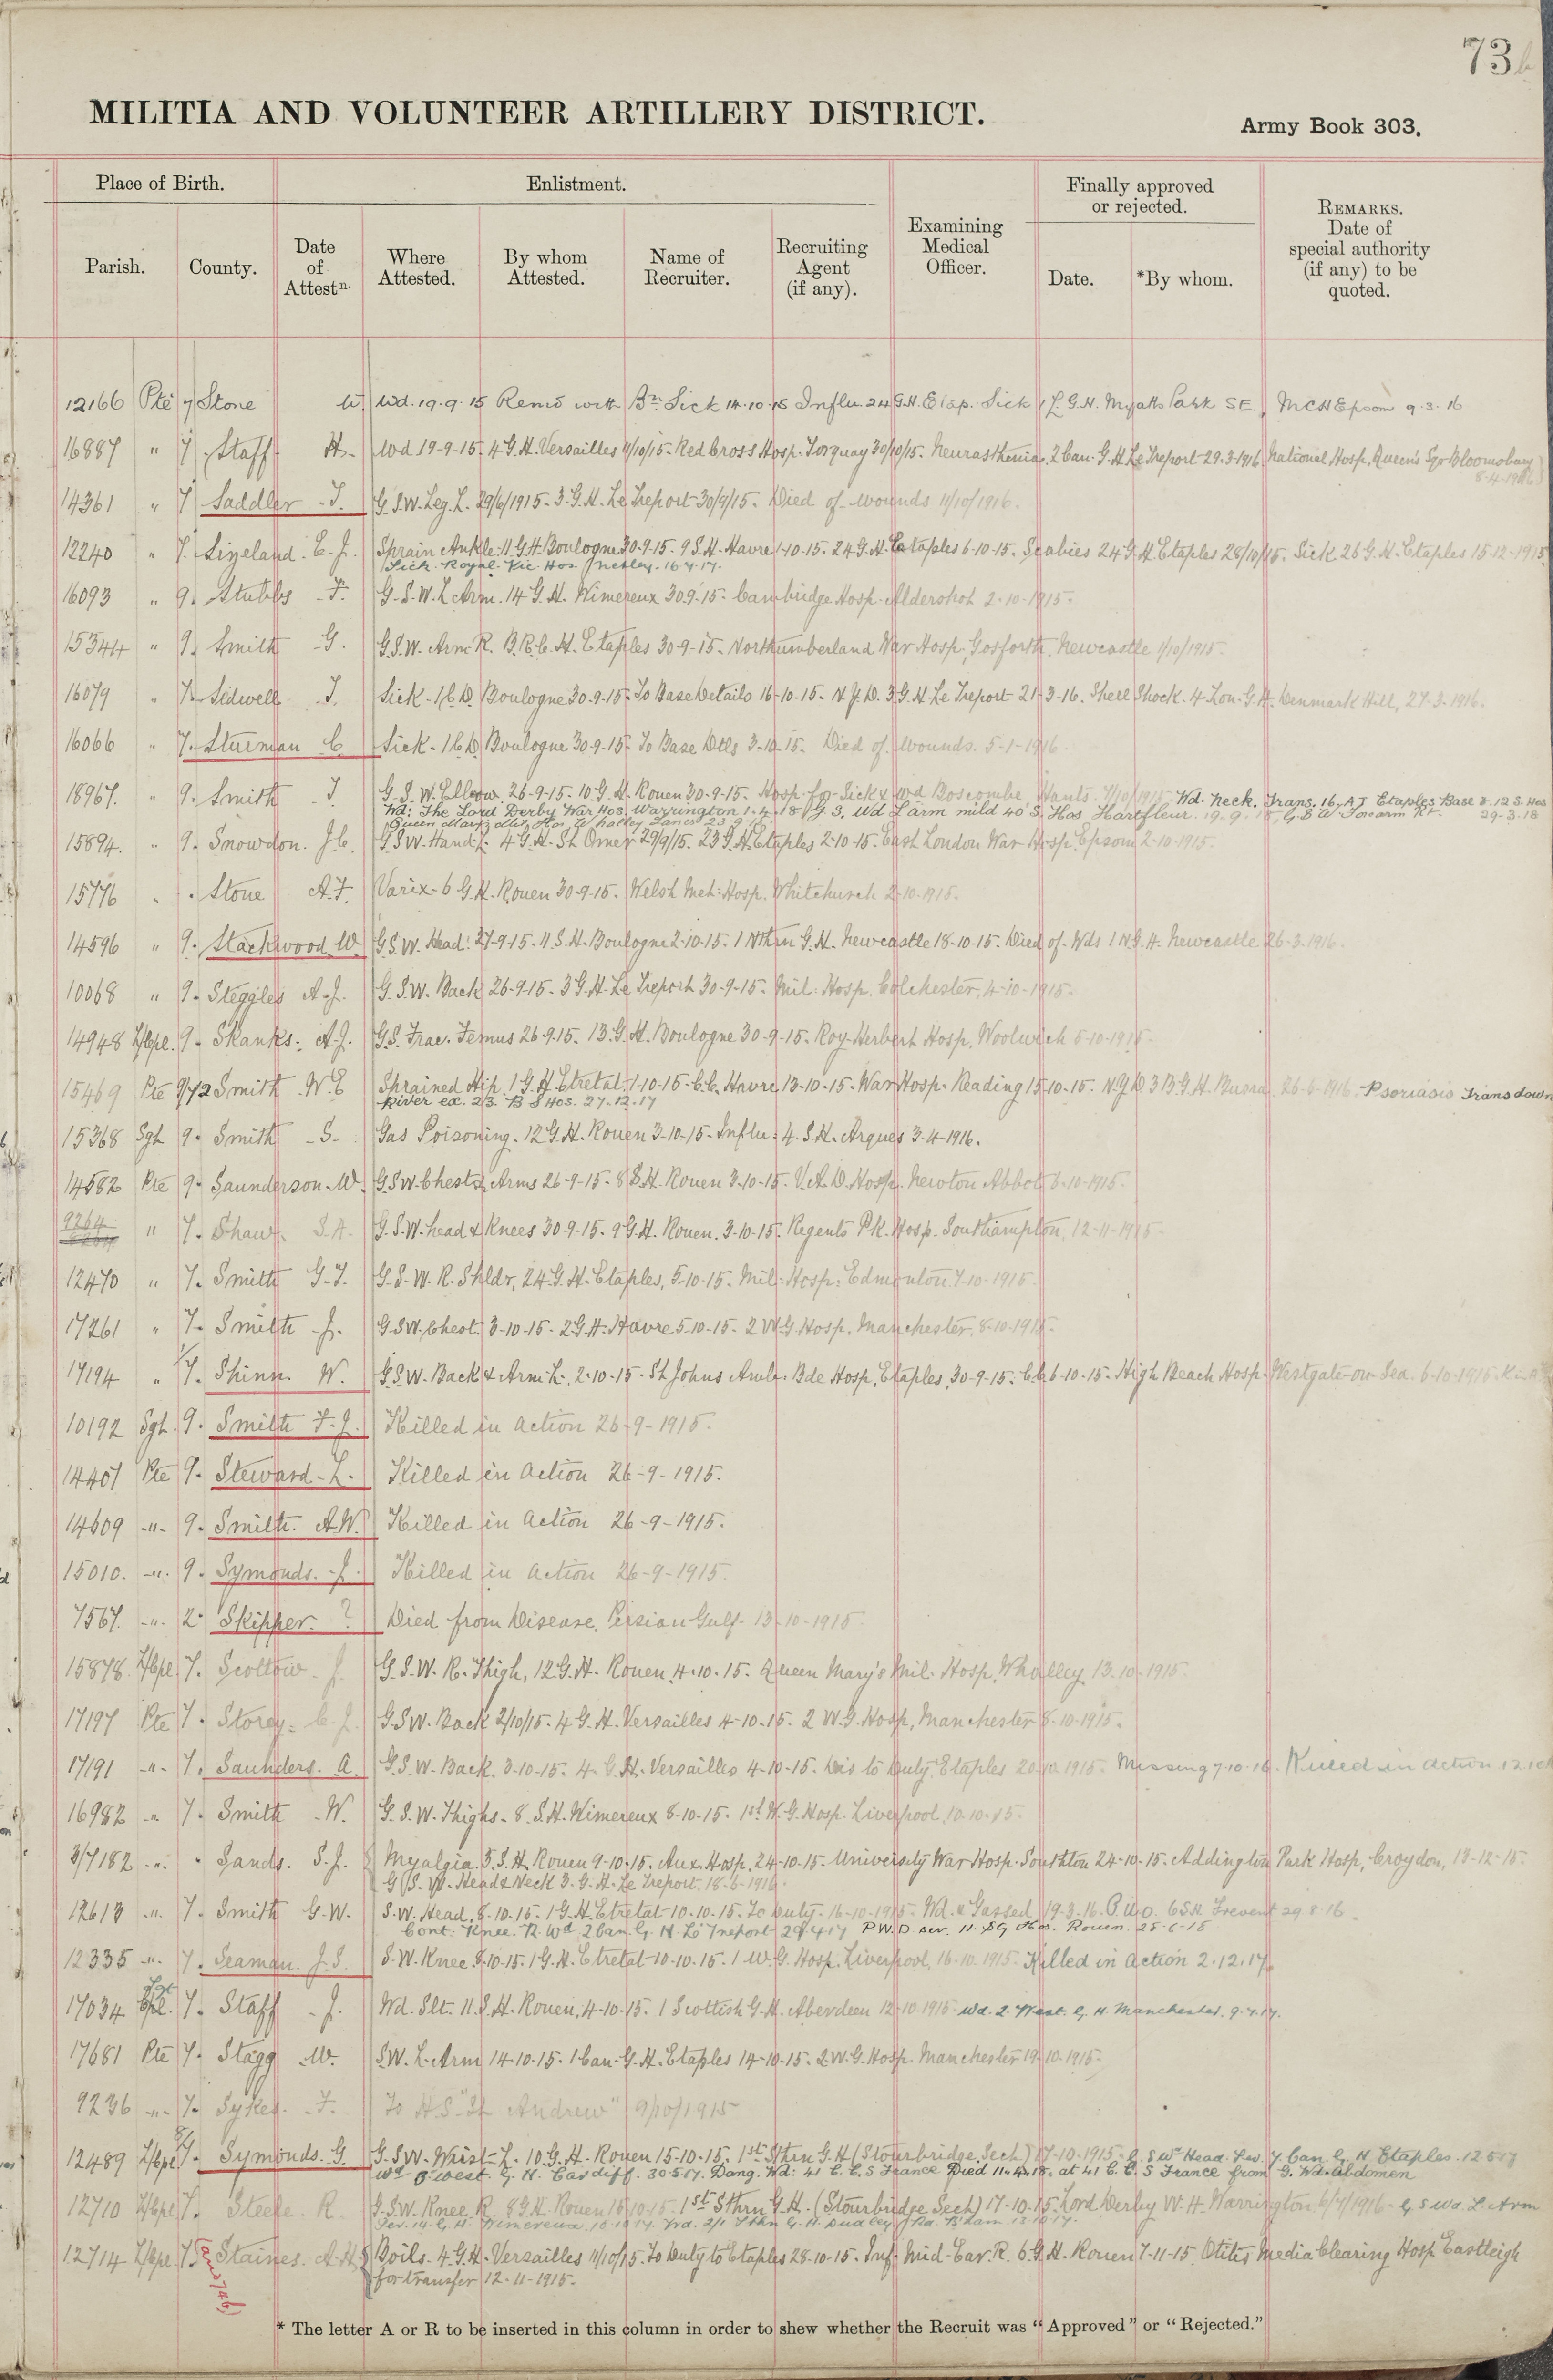 73b
MILITIA AND VOLUNTEER ARTILLERY DISTRICT.
Army Book 303.
Place of Birth. Enlistment. Finally approved or rejected.
Parish. County. Date of Attestn. Where Attested. By whom Attested. Name of Recruiter. Recruiting Agent (if any). Examining Medical Officer. Date. *By whom. REMARKS. Date of special authority (if any) to be quoted.
12166 Pte 7 Stone W. Wd. 19.9.15 Remd with Bn. Sick 14.10.15 Influ 24 G.H. Etap. Sick 1 L.G.H. Myatts Park S.E., MCH Epsom 9.3.16
16887 " 7 Staff H. Wd 19-9-15. 4 G.H. Versailles 11/10/15. Red Cross Hosp. Torquay 30/10/15. Neurasthenia. 2 Can. G.H. Le Treport 29.3.1916 National Hosp. Queen's Sqr Bloomsbury
8.4.1916
14361 " 7 Saddler T. G.S.W. Leg. L. 29/6/1915. 3. G.H. Le Treport 30/9/15. Died of wounds 11/10/1916.
12240 " 7. Sizeland. E.J. Sprain Ankle. 11 G.H. Boulogne 30.9.15. 9 S.H. Havre 1-10-15. 24 G.H. Etaples 6-10-15. Scabies 24 G.H. Etaples 28/10/15. Sick 26 G.H. Etaples 15-12-1915
Sick. Royal. Vic. Hos. Netley. 16.4.17.
16093 " 9. Stubbs F. G.S.W. L Arm. 14 G.H. Wimereux 30.9.15. Cambridge Hosp. Aldershot 2-10-1915.
15344 " 9. Smith G. G.S.W. Arm R. B.R.C.H. Etaples 30-9-15. Northumberland War Hosp, Gosforth, Newcastle 1/10/1915.
16079 " 7. Sidwell T. Sick - 1 C.D. Boulogne 30-9-15. To Base Details 16-10-15. N.Y.D. 3 G.H. Le Treport 21-3-16. Shell Shock. 4 Lon. G.H. Denmark Hill, 27-3-1916.
16066 " 7. Sturman C. Sick - 1 C.D. Boulogne 30-9-15. To Base Dtls 3-10-15. Died of wounds. 5-1-1916.
18967. " 9. Smith T. G.S.W. Elbow 26-9-15. 10 G.H. Rouen 30-9-15. Hosp. for Sick & wd Boscombe Hants. 7/10/1915 Wd. Neck. Trans. 16 A T Etaples Base
Wd: The Lord Derby War Hos. Warrington 1.4.18 G S. Wd L arm mild 40 S. Hos Harfleur. 19.9.18 29.3.18
Queen Marys Mily Hos. Whalley Lancs 23.9.18
15894. " 9. Snowdon. J.C. G.S.W. Hand L. 4 G.H. St Omer 29/9/15. 23 G.H. Etaples 2-10-15. East London War Hosp. Epsom 2-10-1915.
15776 " Stone A.F. Varix - 6 G.H. Rouen 30-9-15. Welsh Met: Hosp. Whitchurch 2-10-1915.
14596 " 9. Stackwood W. G.S.W. Head. 27-9-15. 11 S.H. Boulogne 2-10-15. 1 Nthrn G.H. Newcastle 18-10-15. Died of Wds 1 N.G.H. Newcastle 26-3-1916.
10068 " 9. Steggles A.J. G.S.W. Back 26-9-15. 3 G.H. Le Treport 30-9-15. Mil: Hosp. Colchester, 4-10-1915.
14948 L/Cpl. 9. Skanks. A.J. G.S. Frac. Femus 26.9.15. 13 G.H. Boulogne 30-9-15. Roy. Herbert Hosp. Woolwich 5-10-1915
15469 Pte 9/72 Smith W.E Sprained Hip. 1 G.H. Etretat 1-10-15. C.C. Havre 13-10-15. War Hosp. Reading 15-10-15. N.Y.D 3 B.G.H. Busra. 26-6-1916. Psoriasis Trans down
River ex. 23. B S Hos. 27.12.17
15368 Sgt 9. Smith S. Gas Poisoning. 12 G.H. Rouen 3-10-15. Influ: 4. S.H. Arques 3-4-1916.
14582 Pte 9. Saunderson. W. G.S.W. Chest & Arms 26-9-15. 8 S.H. Rouen 3-10-15. V.A.D. Hosp. Newton Abbot 6-10-1915.
9264 " 7. Shaw. S.A. G.S.W. head & Knees 30-9-15. 9 G.H. Rouen. 3-10-15. Regents Pk. Hosp. Southampton, 12-11-1915.
12470 " 7. Smith G.T. G.S.W. R. Shldr, 24 G.H. Etaples, 5-10-15. Mil: Hosp: Edmonton 7-10-1915.
17261 " 7. Smith J. G.S.W. Chest. 3-10-15. 2 G.H. Havre 5-10-15. 2 W.G Hosp. Manchester, 8-10-1915.
17194 " 7. Shinn W. G.S.W. Back & Arm L., 2-10-15. St Johns Amb. Bde Hosp, Etaples, 30-9-15. 6-10-15. High Beach Hosp. Westgate-on-Sea. 6-10-1915.
10192 Sgt. 9. Smith F.J. Killed in action 26-9-1915.
14407 Pte 9. Steward. L. Killed in Action 26-9-1915.
14609 -"- 9. Smith. A.W. Killed in Action 26-9-1915.
15010. -"- 9. Symonds. J. Killed in Action 26-9-1915.
7567. -"- 2. Skipper. ? Died from Disease, Persian Gulf. 13-10-1915.
15878 L/Cpl. 7. Scottow. J. G.S.W. R. Thigh, 12 G.H. Rouen, 4-10-15. Queen Mary's Mil. Hosp, Whalley 13.10.1915.
17197 Pte 7. Storey. C.J. G.S.W. Back 2/10/15. 4 G.H. Versailles 4-10-15. 2 W.G. Hosp, Manchester 8-10-1915.
17191 -"- 7. Saunders. A. G.S.W. Back. 3-10-15. 4. G.H. Versailles 4-10-15. Dis to Duty Etaples 20.10.1915. Missing 7.10.16. Killed in action
16982 -"- 7. Smith W. G.S.W. Thighs. 8. S.H. Wimereux 8-10-15. 1st W.G. Hosp. Liverpool, 10.10.15.
3/7182 -"- Sands. S.J. Myalgia. 5. S.H. Rouen 9-10-15. Aux. Hosp. 24-10-15. University War Hosp. Southton 24-10-15. Addington Park Hosp, Croydon, 13-12-15.
G.S.W. Head & Neck 3. G.H. Le Treport. 18.6.1916.
12613 -"- 7. Smith G.W. S.W. Head, 8-10-15. 1 G.H. Etretat 10-10-15. To Duty. 16-10-1915. Wd. & Gassed 19.3.16. P.U.O. 6 S.H. Frevent 29.8.16.
Cont. Knee. R. Wd 2 Can. G. H. Le Treport 29.4.17 Rouen. 25-6-18
12335 -"- 7. Seaman. J.S. S.W. Knee. 8-10-15. 1 G.H. Etretat 10-10-15. 1. W.G. Hosp. Liverpool, 16-10-1915. Killed in Action 2.12.17.
17034 Sgt Cpl. 7. Staff J. Wd. Slt. 11. S.H. Rouen, 4-10-15. 1 Scottish G.H. Aberdeen 12-10-1915 Wd. 2. West. G. H. Manchester. 9.4.17.
17681 Pte 7. Stagg W. S.W. L. Arm 14-10-15. 1 Can. G.H. Etaples 14-10-15. 2. W.G. Hosp. Manchester 19.10.1915.
9236 -"- 7. Sykes. F. To H.S. "St Andrew" 9/10/1915
12489 L/Cpl 8/7. Symonds. G G.S.W. Wrist L. 10 G.H. Rouen 15-10-15. 1st Sthrn G.H (Stourbridge Sech) 17-10-1915. G. S Wd Head. 7. Can. G. H Etaples. 12.5.17
Wd 3 West. G. H. Cardiff. 30.5.17. Dang. Wd: 41 C. C. S France Died 11.4.18. at 41 C. C. S France from G. Wd. abdomen
12710 L/Cpl 7. Steele. R. G.S.W. Knee R. 8 G.H. Rouen 15-10-15. 1st Sthrn G.H. (Stourbridge Sech) 17-10-15. Lord Derby W.H. Warrington 6/7/1916 - G S Wd. L. Arm
Sev. 14. G. H. Wimereux. 10.10.17. Trd. 2/1 Sthn G. H. Dudley Rd. B'ham 13.10.17.
12714 L/Cpl 7. Staines. A.H. Boils. 4 G.H. Versailles 11/10/15. To Duty to Etaples 28-10-15. Inf. Mid-Ear. R. 6 G.H. Rouen 7-11-15. Otitis Media Clearing Hosp Eastleigh
for transfer 12-11-1915.
* The letter A or R to be inserted in this column in order to shew whether the Recruit was "Approved" or "Rejected."